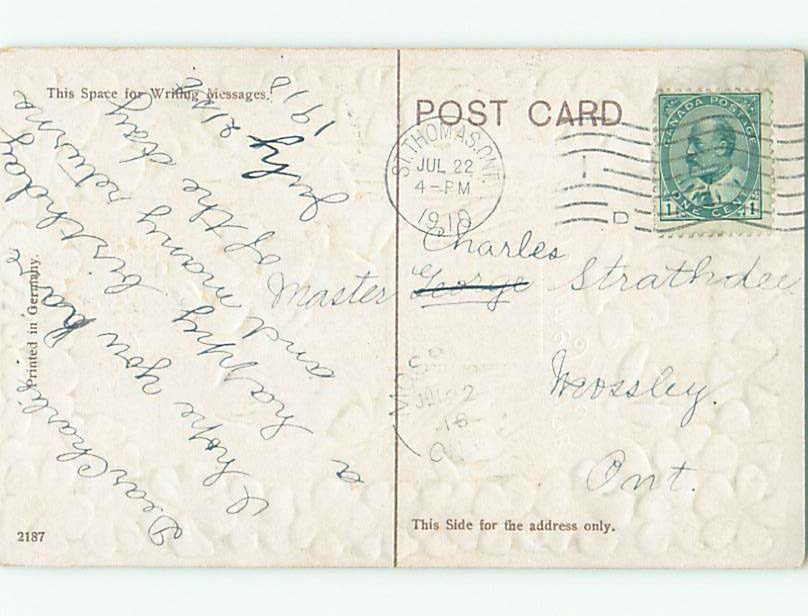 This Space for Writing Messages.
July 21st
1910
Dear Charlie
I hope you have
a happy birthday
and many returns
of the day
Printed in Germany.
2187
POST CARD
ST. THOMAS. ONT.
JUL 22
4-PM
1910
D
CANADA POSTAGE
1 1
ONE CENT
Charles
Master George Strathdee
Mossley.
Ont.
MOSS
JUL 22
10
This Side for the address only.